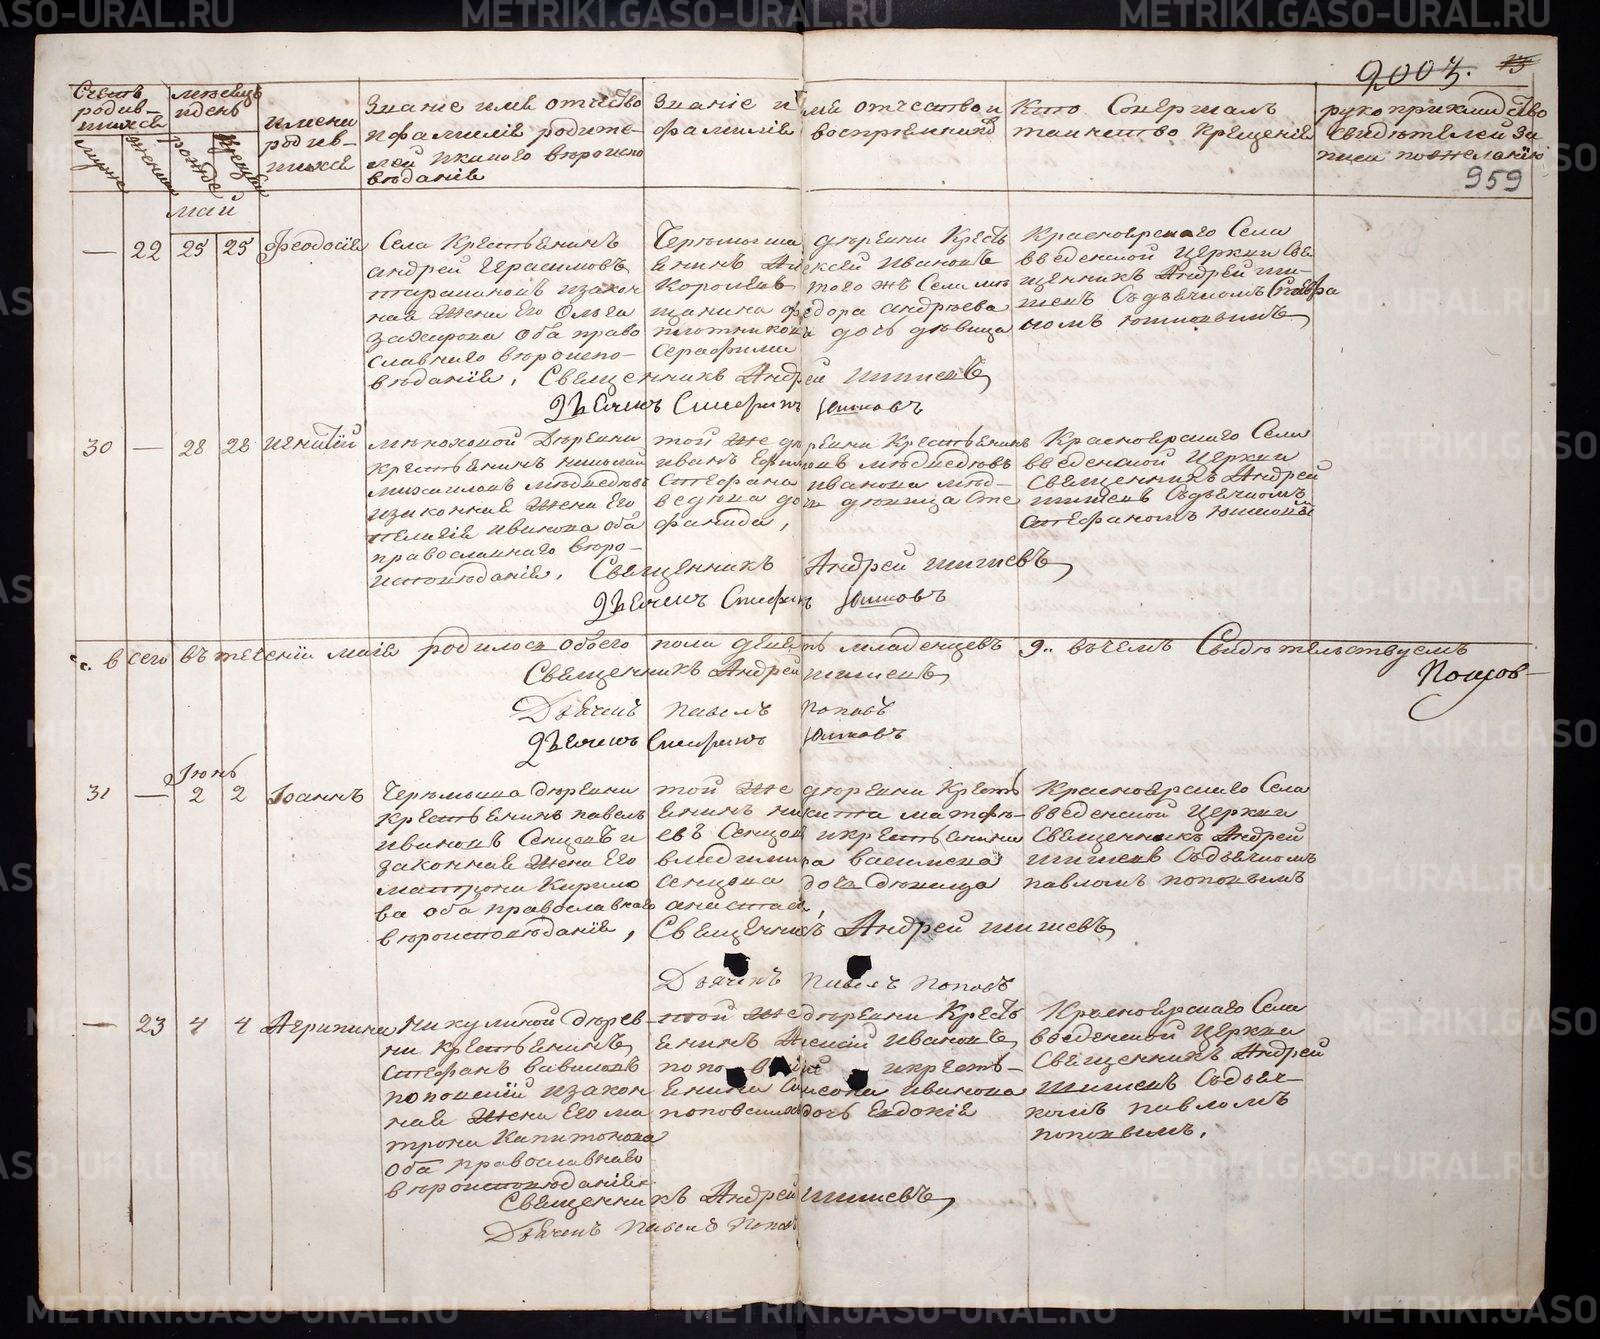 METRIKI.GASO-URAL.RU
2007. 15
Счетъ родив-шихся
мужс женски
месяцъ и день
рожде крещен
имена родив-шихся
Звание имя отчество и фамилия родите-лей и какого вероиспо ведания
Звание имя отчество и фамилия восприемников
Кто Совершалъ таинство крещения
рукоприкладство свидетелей за писи по желанию
959
май
— 22 25 25 Феодосия
Села Крестьянинъ
андрей Герасимовъ
и закон
ная жена Его Ольга
захарова оба право
славнаго вероиспо-
ведания,
деревни Кресть
янинъ Алексей Ивановъ
Королевъ того жъ Села
Федора андреева
дочь девица
Серафима
Красноярскаго Села
введенской Церкви Свя
щенникъ Андрей ши-
шевъ Съ дьячкомъ Стефа
номъ юшковымъ
Священникъ Андрей шишевъ
Дьячекъ Стефанъ Юшковъ
30 — 28 28 игнатий
деревни
крестьянинъ николай
михаиловъ медведевъ
и законная жена Его
пелагия иванова оба
православнаго веро-
исповедания,
той же деревни Крестьянинъ
иванъ Ефимовъ медведевъ
Стефана иванова мед-
ведева дочь девица Сте
фанида,
Красноярскаго Села
введенской Церкви
Священникъ Андрей
шишевъ Съ дьячкомъ
стефаномъ юшковы
Священникъ Андрей шишевъ
Дьячекъ Стефанъ Юшковъ
всего въ течении мая родилося обоего пола девять младенцевъ 9.. въ чемъ Свидетельствуемъ
Священникъ Андрей шишевъ
Дьячекъ павелъ поповъ
Дьячекъ Стефанъ Юшковъ
Июнь
31 — 2 2 Иоаннъ
деревни
крестьянинъ павелъ
ивановъ Сенцовъ и
законная жена Его
матрона Кирило
ва оба православнаго
вероисповедания,
той же деревни Кресть
янинъ никита матфе-
евъ Сенцовъ и крестьянина
владимира васильева
Сенцова дочь девица
анастасия,
Красноярскаго Села
введенской Церкви
Священникъ Андрей
шишевъ Съ дьячкомъ
павломъ поповымъ
Священникъ Андрей шишевъ
Дьячекъ Павелъ Поповъ
— 23 4 4 Агрипина
Никулиной дерев-
ни крестьянинъ
Стефанъ вавиловъ
и закон
ная жена Его ма
трона Капитонова
оба православнаго
вероисповедания
той же деревни Кресть
янинъ Ивановъ
и кресть-
янина Иванова
дочь Евдокия
Красноярскаго Села
введенской Церкви
Священникъ Андрей
шишевъ Съ дьяч-
комъ павломъ
поповымъ.
Священникъ Андрей шишевъ
Дьячекъ Павелъ Поповъ